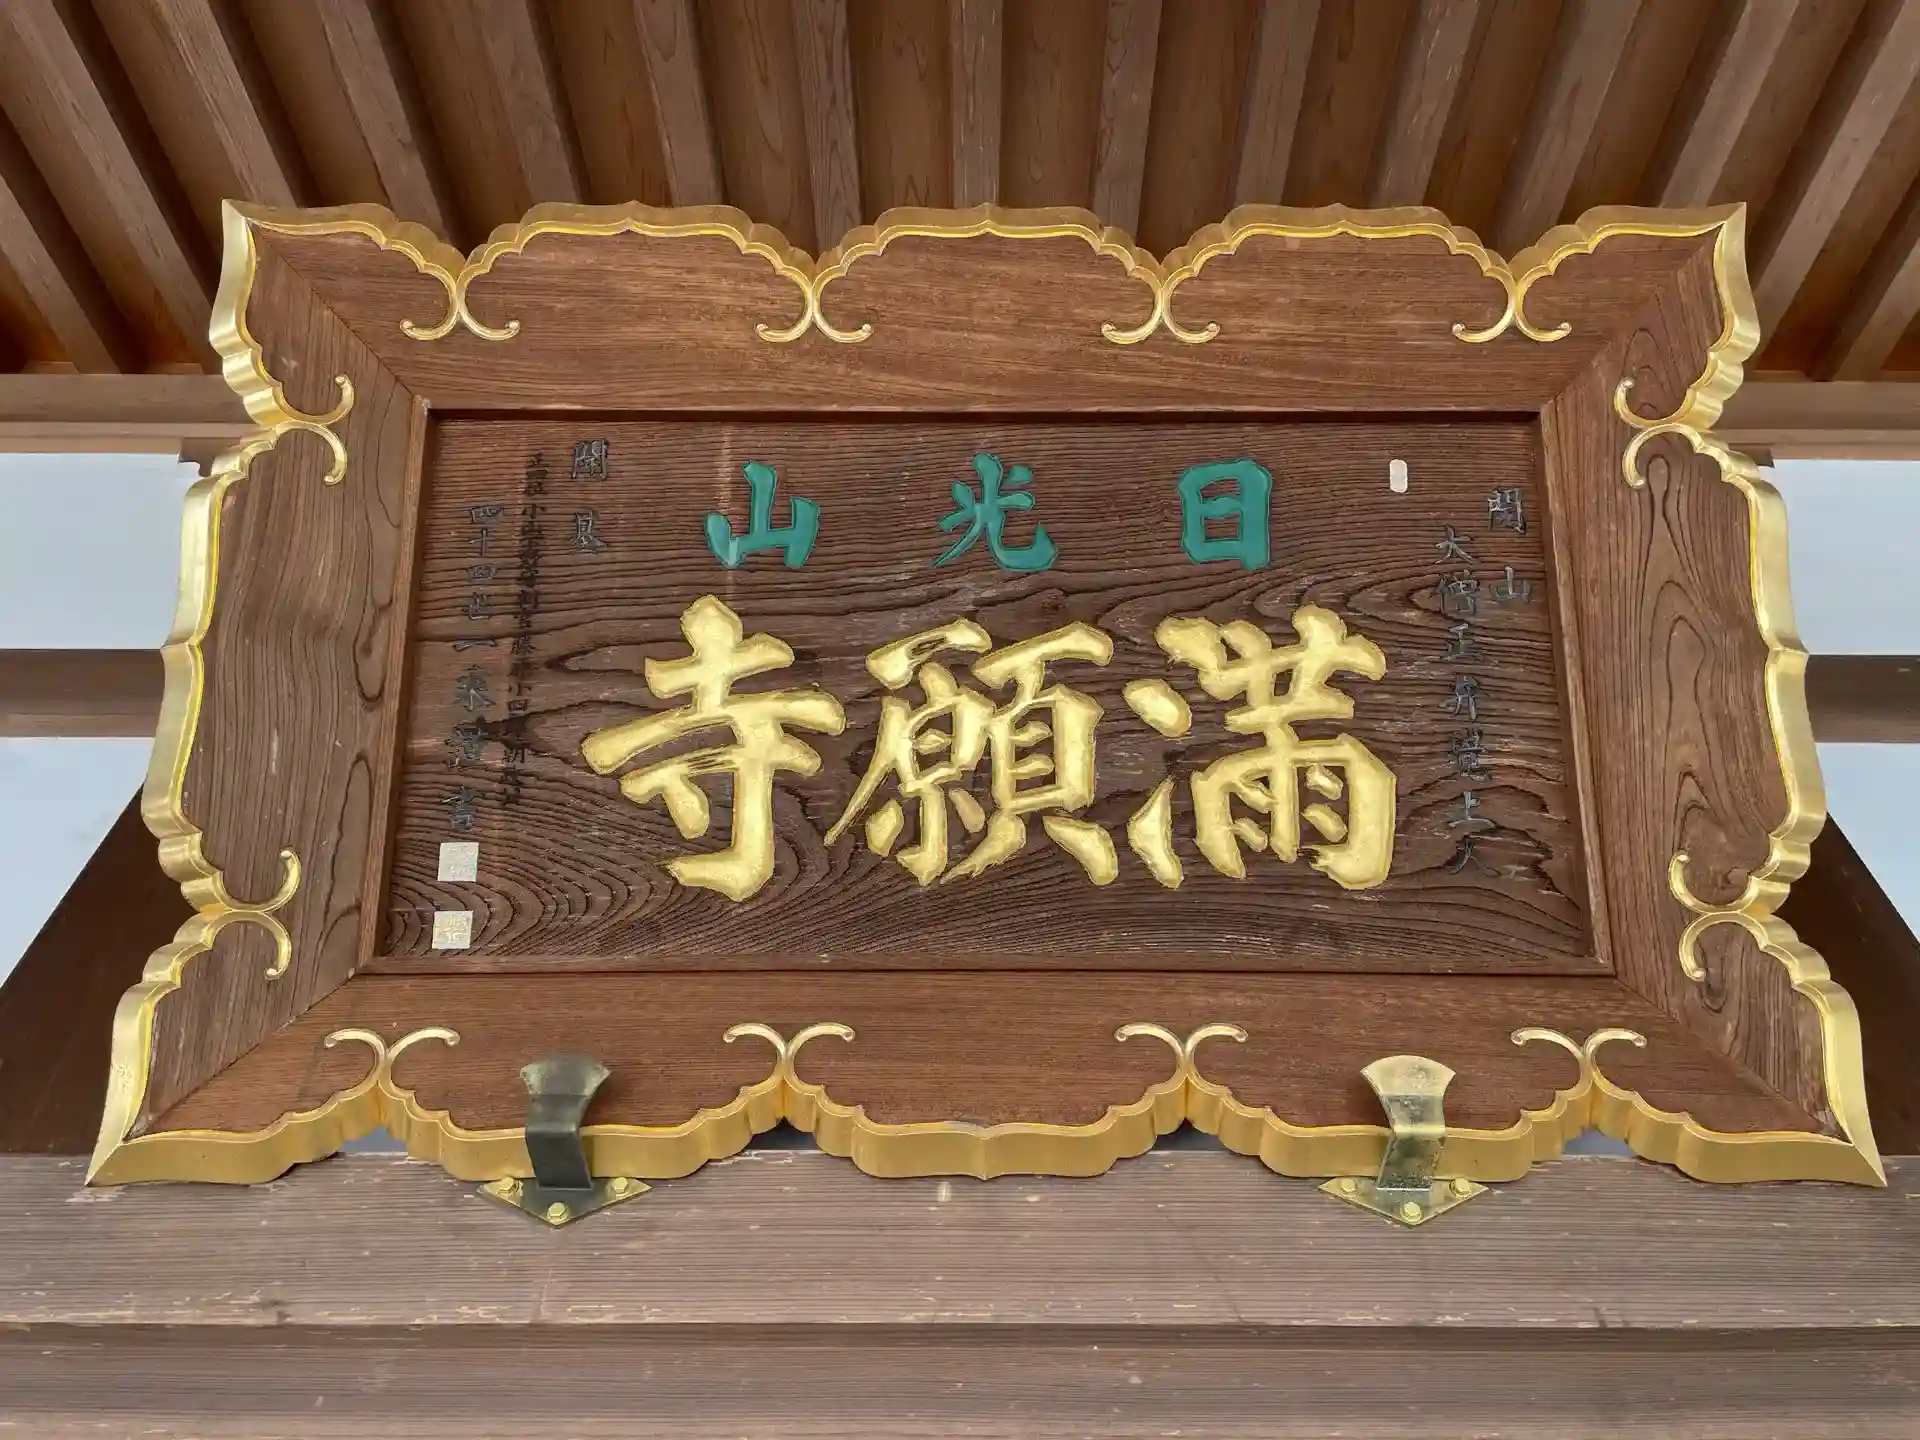 日光山
満願寺
開山
大僧正弁覚上人
開基
四十四世一来澄書